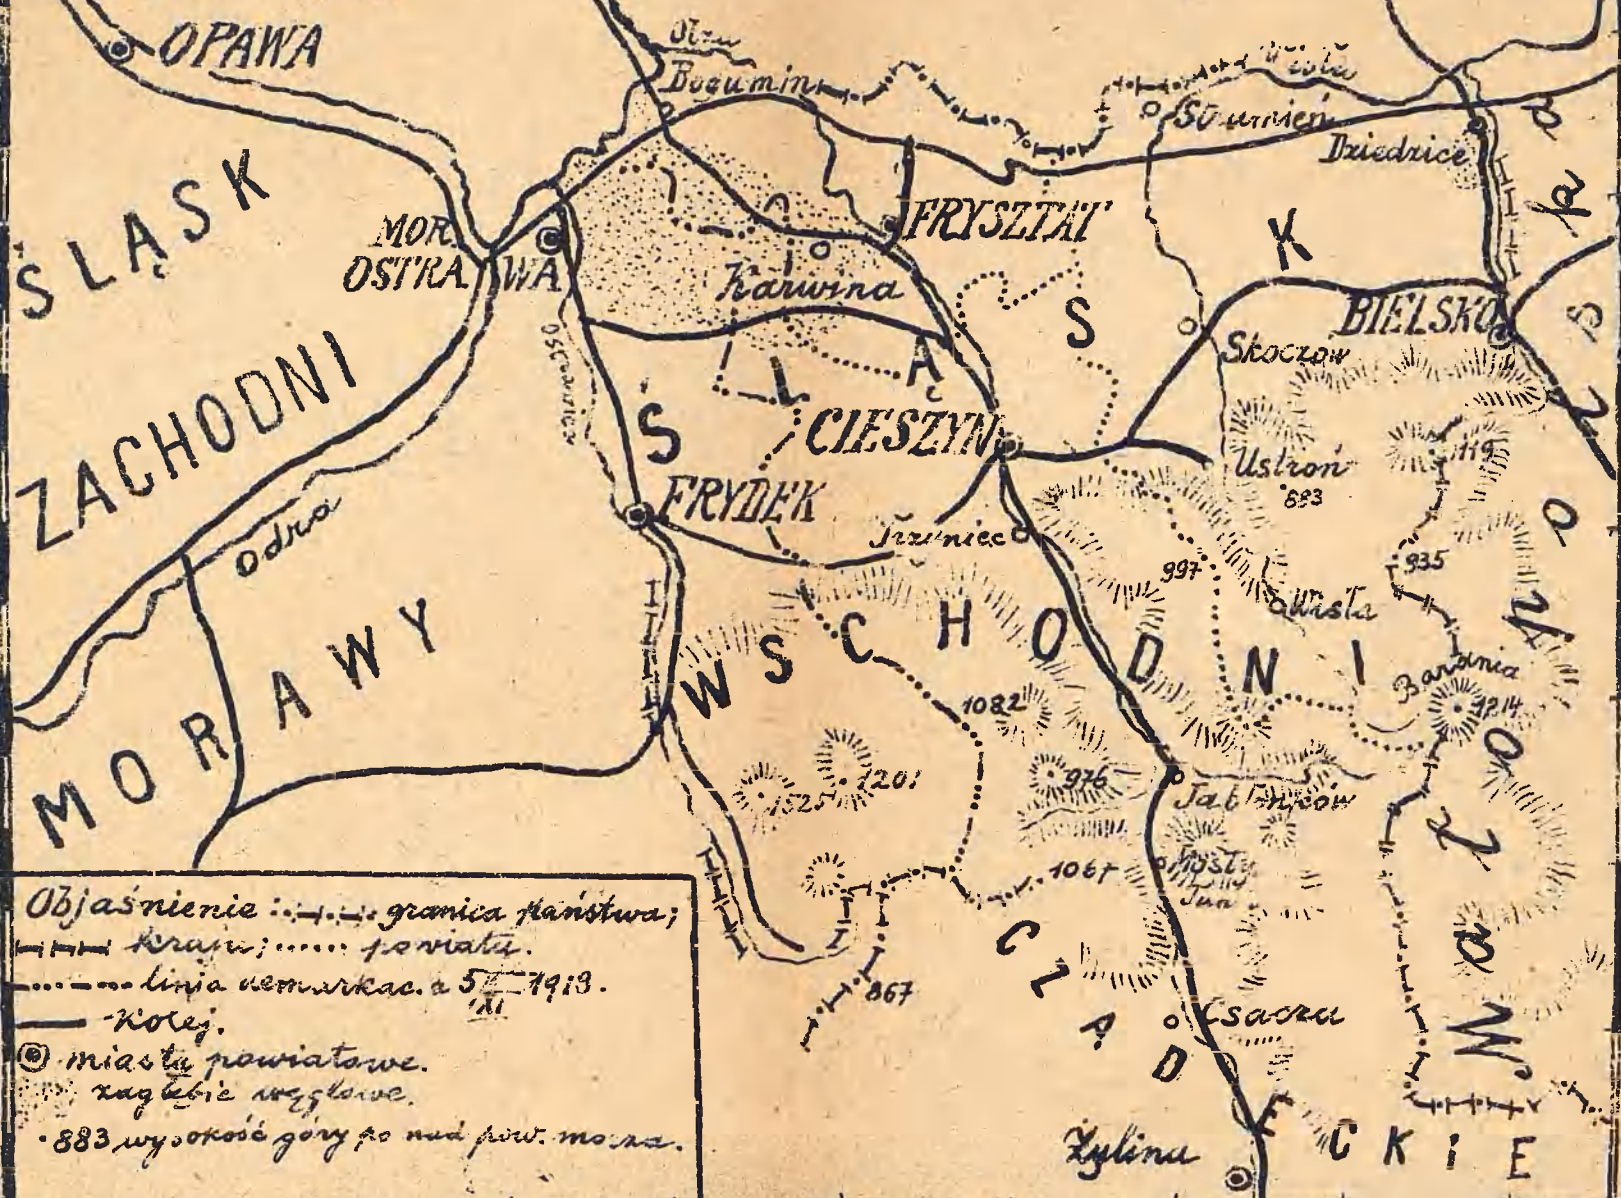 OPAWA
Olza
Bogumin
Wisła
Strumień
Dziedzice
ŚLĄSK
ZACHODNI
MOR.
OSTRAWA
FRYSZTAT
Karwina
BIELSKO
Skoczów
ŚLĄSK
CIESZYN
Ustroń
883
1119
FRYDEK
Trzyniec
Odra
997
935
Wisła
WSCHODNI
MORAWY
Barania
1214
1082
976
1201
1325
Jabłonków
1067
Mosty
867
CZADECKIE
Csacza
Żylina
Małopolska
Objaśnienie: granica państwa;
kraju; powiatu.
linia demarkac. z 5/XI 1918.
Kolej.
miasta powiatowe.
zagłębie węglowe.
• 883 wysokość góry po nad pow. morza.